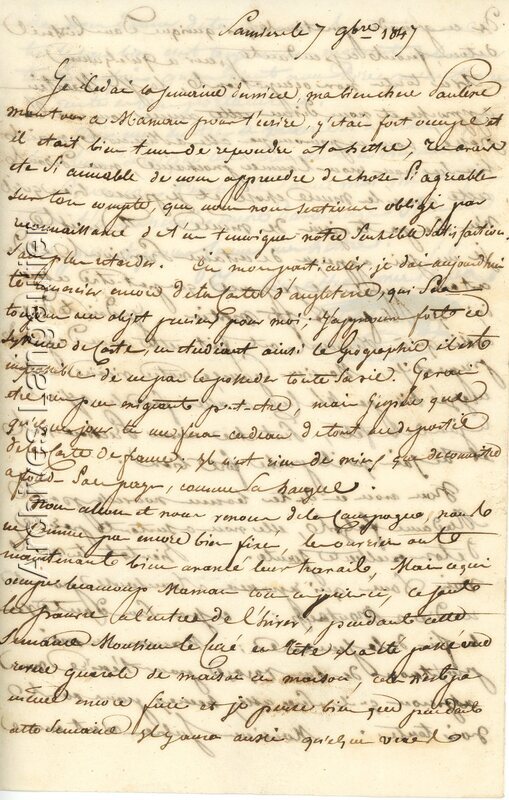 le 7 9bre 1847
Je cédai la semaine dernière, ma bien chère Pauline
mon tour à Maman pour t'écrire, j'étai fort occupé et
il était bien de repondre a ta lettre, tu avais
été si aimable de nous apprendre de chose si agréable
sur ton compte, que nous nous sentions obligé par
reconnaissance de t'en temoigner notre sensible satisfaction
sans plus retarder. En mon particulier je dai aujourd'hui
te remercier envoi de la Carte d'angleterre, qui sera
toujour un objet precieux pour moi, j'approuve fort ce
systeme de Carte, en etudiant ainsi la geographie il est
impossible de ne pas le posseder toute sa vie. Je serai
etre un peu exigeante peut-etre, mais j'espere que
quelque jour tu me feras cadeau de tout
de la Carte de france. Il n'est rien de mieux que de connaitre
a fond son pays, comme sa langue.
Nous allons et nous venons de la Campagne, nous
ne sommes pas encore bien fixé, les ouvriers ont
maintenant bien avancé leur travail, Mais ce qui
occupe beaucoup Maman ce sont
les pauvres a l'entrée de l'hiver, pendant cette
Semaine Monsieur le Curé en tete il a été
queté de maison en maison, ce n'est pas
même encore fini et je pense bien que pendant
cette Semaine il y aura aussi quelque
Archives Languille